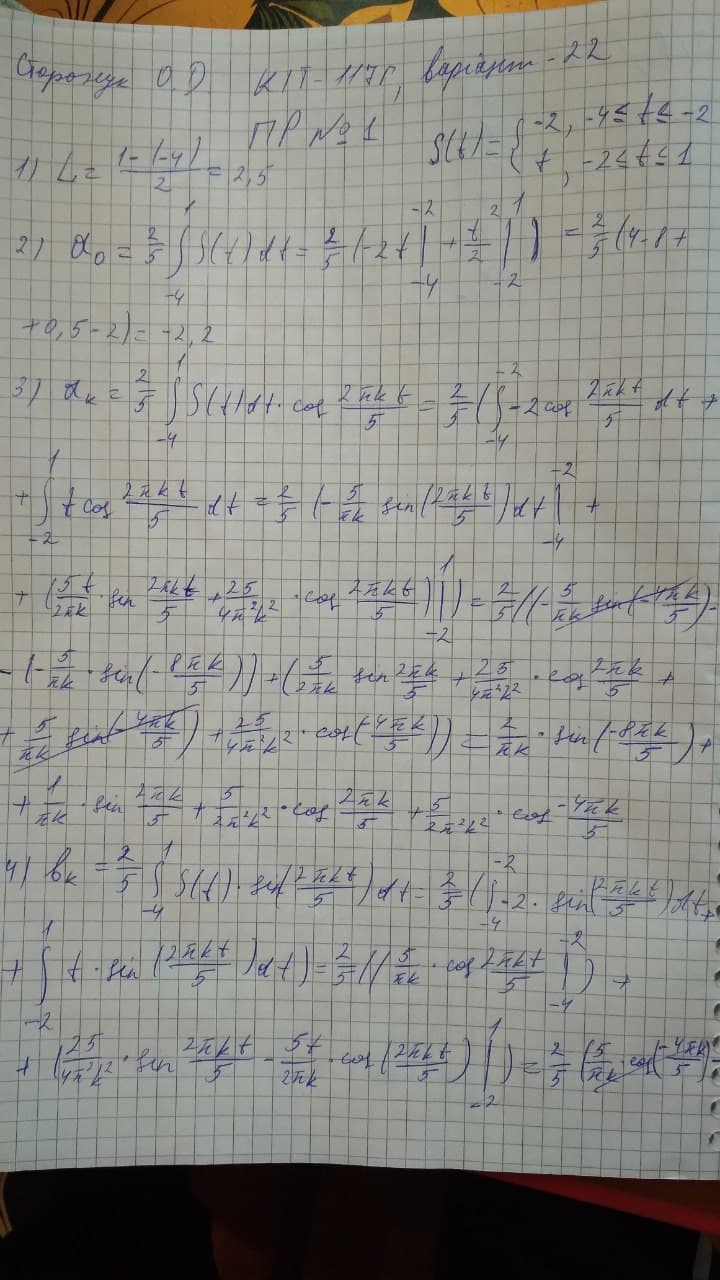 Сторожук О.Д КІТ-117Г, варіант-22
ПР №1 S(t) = { -2, -4≤t≤-2
t, -2≤t≤1
1) L = (1-(-4))/2 = 2,5
2) a₀ = 2/5 ∫₋₄¹ S(t)dt = 2/5 (-2t |₋₄⁻² + t²/2 |₋₂¹) = 2/5 (4-8+
+0,5-2) = -2,2
3) aₖ = 2/5 ∫₋₄¹ S(t)dt · cos 2πkt/5 = 2/5 (∫₋₄⁻² -2cos 2πkt/5 dt +
+ ∫₋₂¹ t cos 2πkt/5 dt = 2/5 (-5/πk sin(2πkt/5)dt |₋₄⁻² +
+ (5t/2πk · sin 2πkt/5 + 25/4π²k² · cos 2πkt/5) |₋₂¹) = 2/5 ((-5/πk sin(-4πk/5) -
- (-5/πk · sin(-8πk/5)) + (5/2πk sin 2πk/5 + 25/4π²k² · cos 2πk/5 +
+ 5/πk sin(-4πk/5) + 25/4π²k² · cos(-4πk/5)) = 2/πk · sin(-8πk/5) +
+ 1/πk · sin 2πk/5 + 5/2π²k² · cos 2πk/5 + 5/2π²k² · cos -4πk/5
4) bₖ = 2/5 ∫₋₄¹ S(t) · sin(2πkt/5)dt = 2/5 (∫₋₄⁻² -2 · sin(2πkt/5)dt +
+ ∫₋₂¹ t · sin(2πkt/5)dt) = 2/5 ((5/πk · cos 2πkt/5 |₋₄⁻²) +
+ (25/4π²k² · sin 2πkt/5 - 5t/2πk · cos(2πkt/5) |₋₂¹) = 2/5 (5/πk · cos(-4πk/5) -